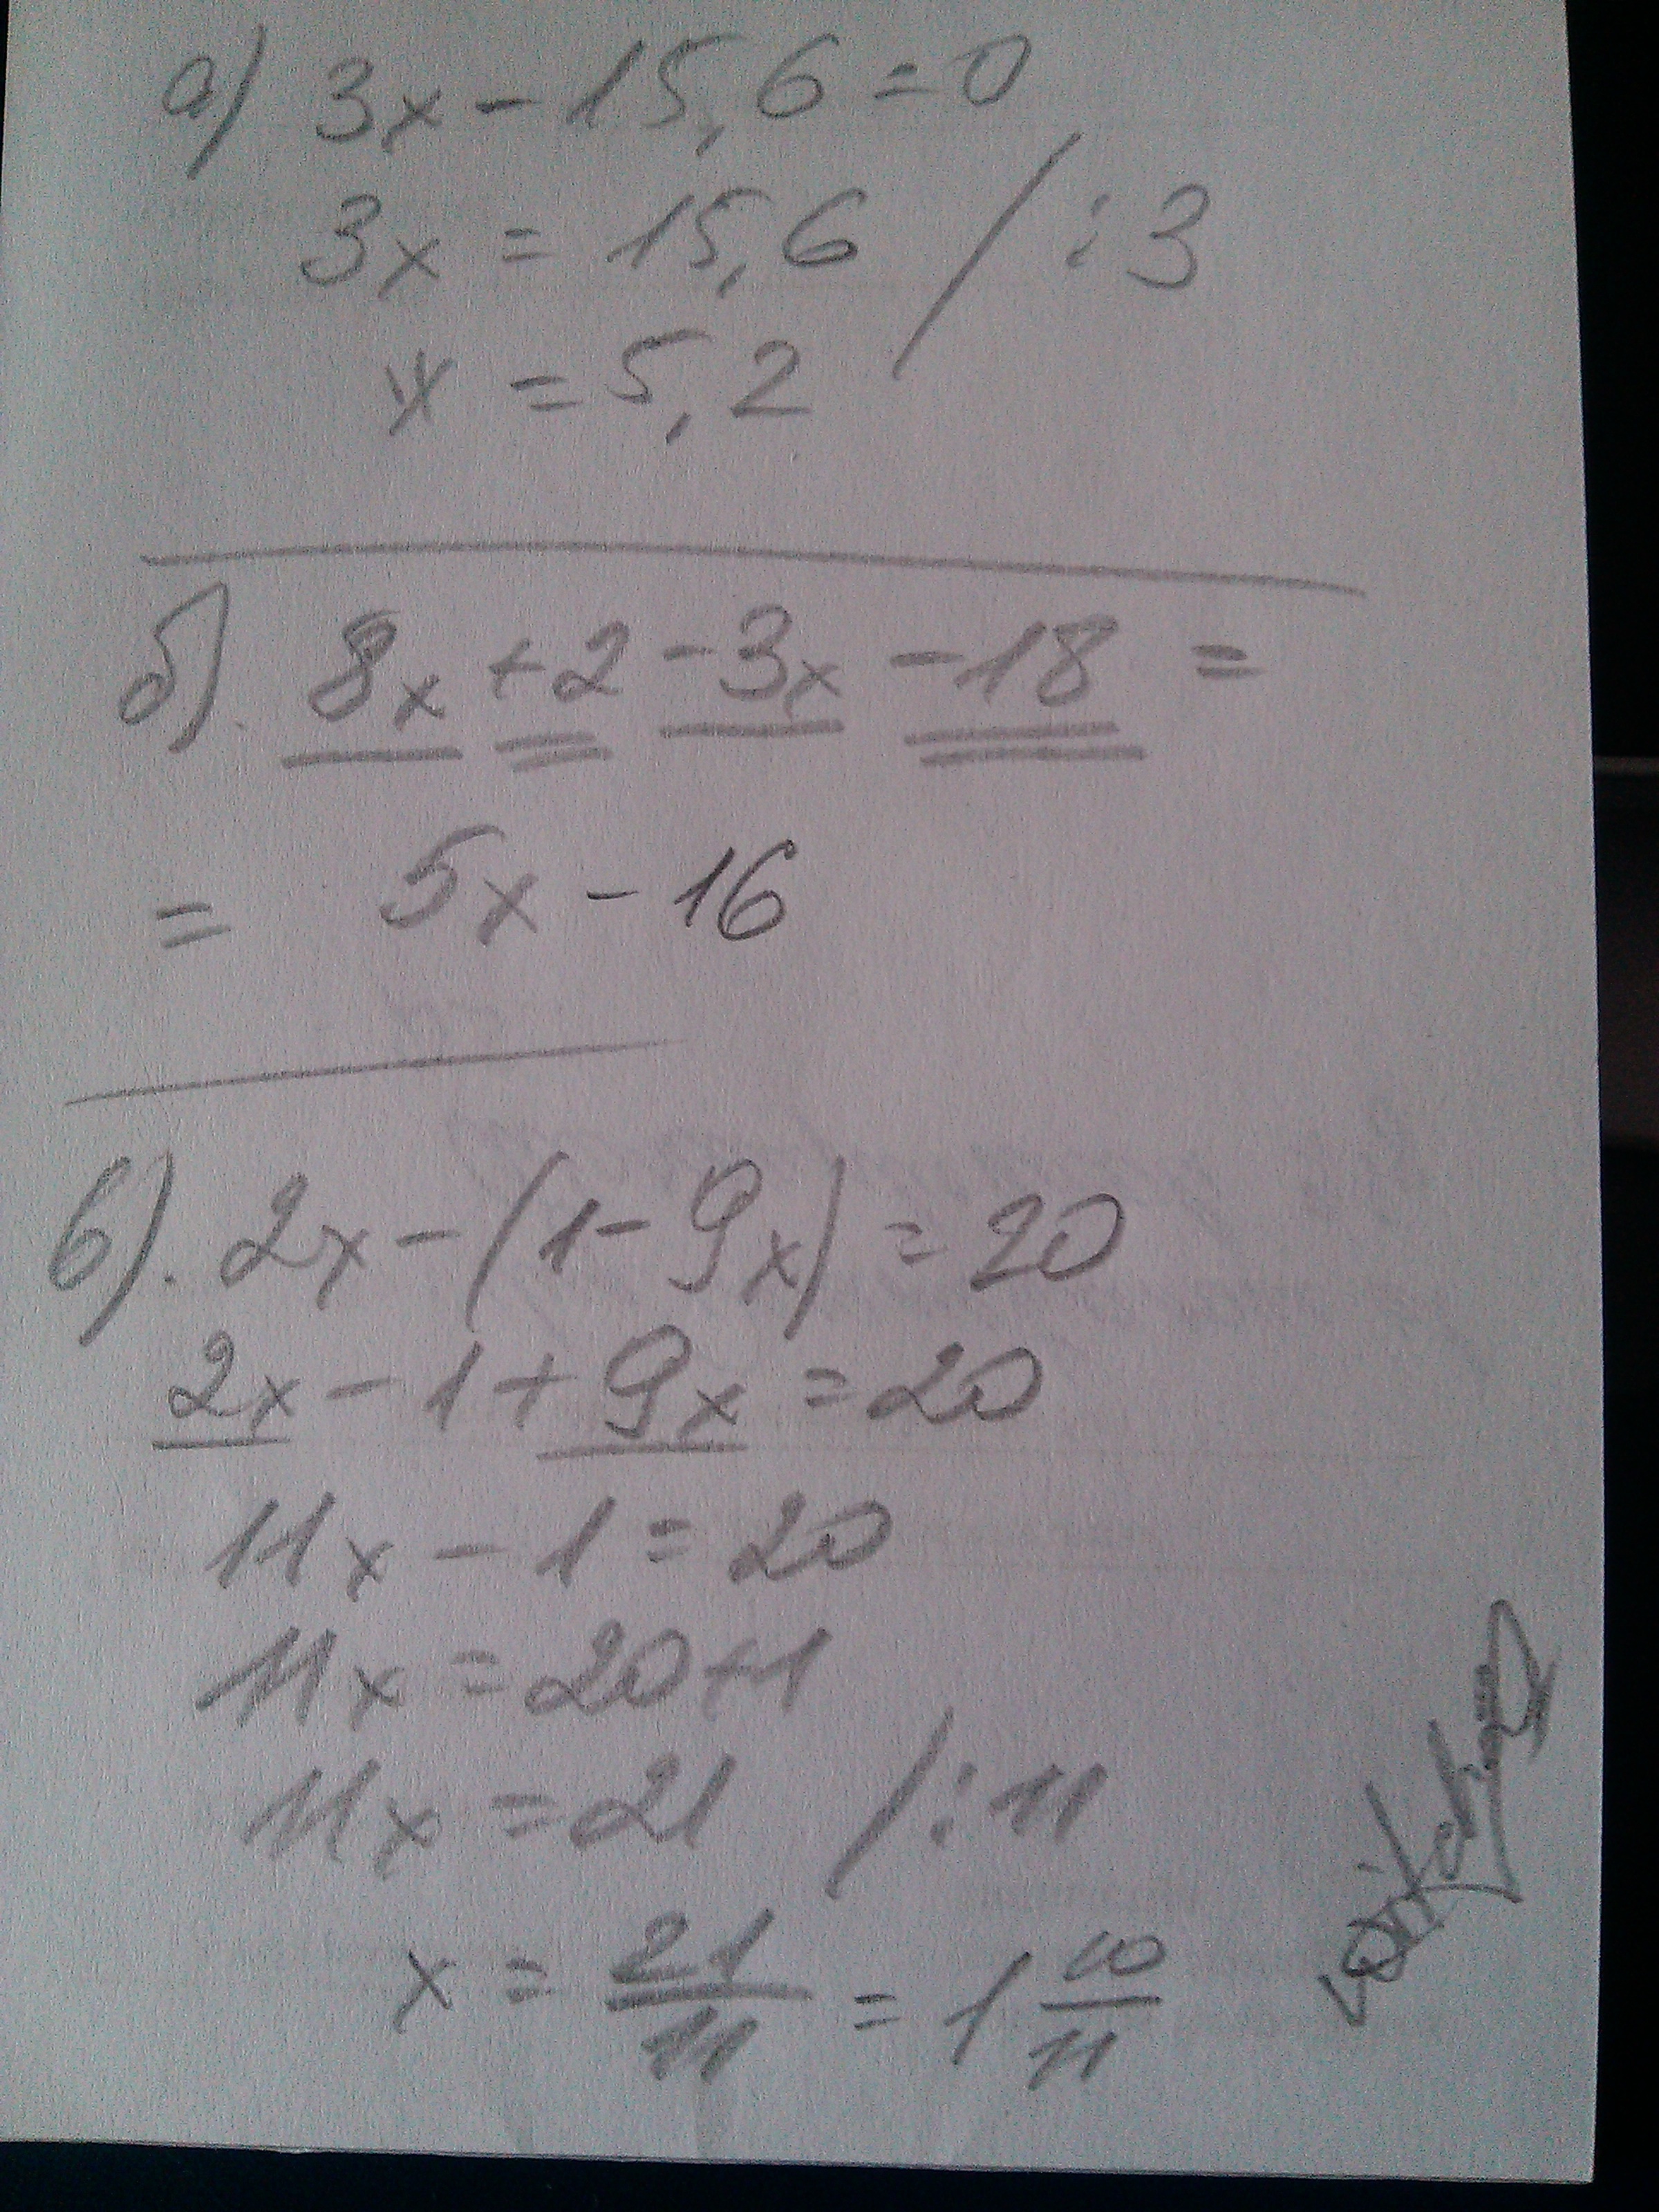 а) 3x - 15,6 = 0
3x = 15,6 / : 3
x = 5,2
б). 8x + 2 - 3x - 18 =
= 5x - 16
в). 2x - (1 - 9x) = 20
2x - 1 + 9x = 20
11x - 1 = 20
11x = 20 + 1
11x = 21 / : 11
x = 21/11 = 1 10/11